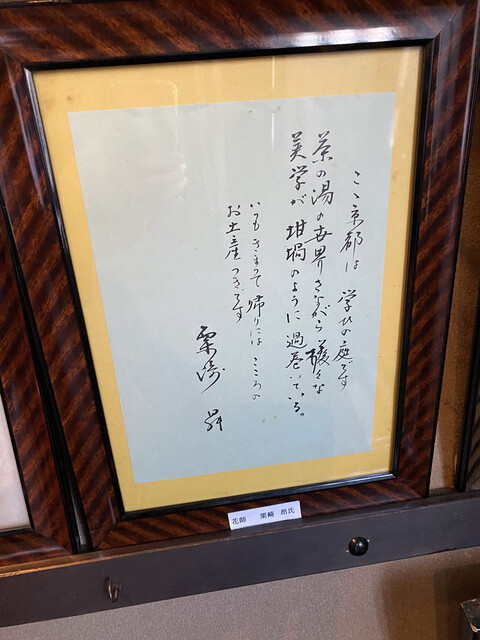 こゝ京都は 学びの庭です
茶の湯の世界さながら 様々な
美学が 坩堝のように 渦巻いている。
いつもきまって帰りには こころの
お土産つきです
栗崎 昇
花師 栗崎 昇氏